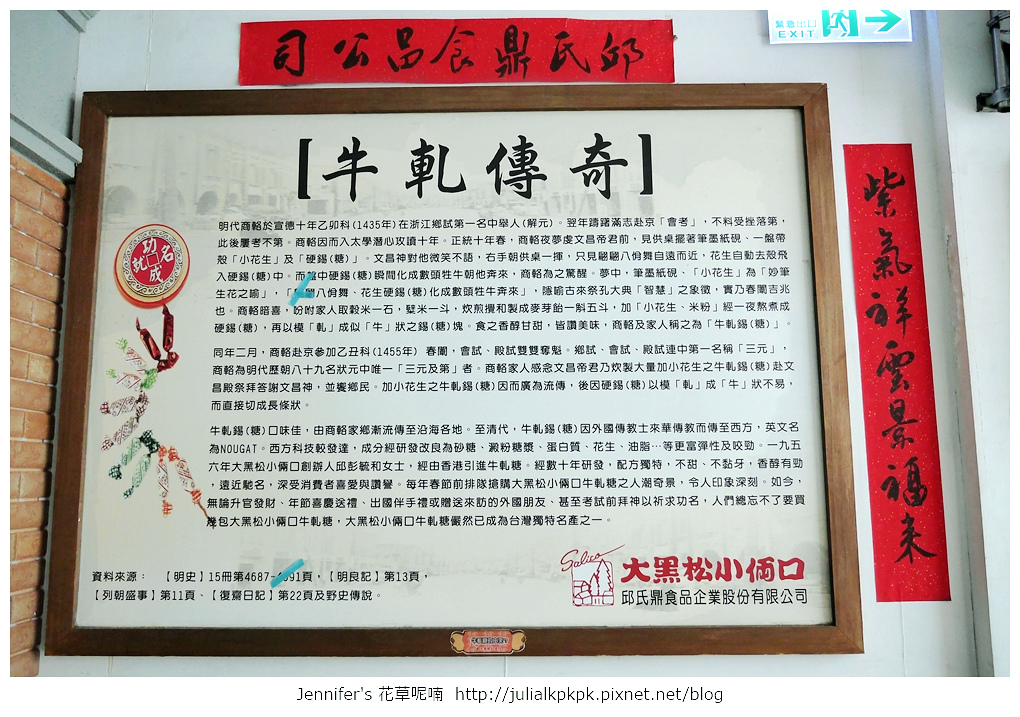 緊急出口
EXIT
司公品食鼎氏邱
【牛軋傳奇】
功名
就成
明代商輅於宣德十年乙卯科(1435年)在浙江鄉試第一名中舉人(解元)。翌年躊躇滿志赴京「會考」,不料受挫落第,
此後屢考不第。商輅因而入太學潛心攻讀十年。正統十年春,商輅夜夢虔文昌帝君前,見供桌擺著筆墨紙硯、一盤帶
殼「小花生」及「硬錫(糖)」。文昌神對他微笑不語,右手朝供桌一揮,只見翩翩八佾舞自遠而近,花生自動去殼飛
入硬錫(糖)中。而盤中硬錫(糖)瞬間化成數頭牲牛朝他奔來,商輅為之驚醒。夢中,筆墨紙硯、「小花生」為「妙筆
生花之喻」,「翩八佾舞、花生硬錫(糖)化成數頭牲牛奔來」,隱喻古來祭孔大典「智慧」之象徵,實乃春闈吉兆
也。商輅暗喜,吩咐家人取穀米一石,糵米一斗,炊煎攪和製成麥芽飴一斛五斗,加「小花生、米粉」經一夜熬煮成
硬錫(糖),再以模「軋」成似「牛」狀之錫(糖)塊。食之香醇甘甜,皆讚美味,商輅及家人稱之為「牛軋錫(糖)」。
同年二月,商輅赴京參加乙丑科(1455年) 春闈,會試、殿試雙雙奪魁。鄉試、會試、殿試連中第一名稱「三元」,
商輅為明代歷朝八十九名狀元中唯一「三元及第」者。商輅家人感念文昌帝君乃炊製大量加小花生之牛軋錫(糖)赴文
昌殿祭拜答謝文昌神,並饗鄉民。加小花生之牛軋錫(糖)因而廣為流傳,後因硬錫(糖)以模「軋」成「牛」狀不易,
而直接切成長條狀。
牛軋錫(糖)口味佳,由商輅家鄉漸流傳至沿海各地。至清代,牛軋錫(糖)因外國傳教士來華傳教而傳至西方,英文名
為NOUGAT。西方科技較發達,成分經研發改良為砂糖、澱粉糖漿、蛋白質、花生、油脂…等更富彈性及咬勁。一九五
六年大黑松小倆口創辦人邱彭毓和女士,經由香港引進牛軋糖。經數十年研發,配方獨特,不甜、不黏牙,香醇有勁
,遠近馳名,深受消費者喜愛與讚譽。每年春節前排隊搶購大黑松小倆口牛軋糖之人潮奇景,令人印象深刻。如今,
無論升官發財、年節喜慶送禮、出國伴手禮或贈送來訪的外國朋友、甚至考試前拜神以祈求功名,人們總忘不了要買
幾包大黑松小倆口牛軋糖,大黑松小倆口牛軋糖儼然已成為台灣獨特名產之一。
資料來源: 【明史】15冊第4687-4691頁,【明良記】第13頁,
【列朝盛事】第11頁、【復齋日記】第22頁及野史傳說。
Salico
大黑松小倆口
邱氏鼎食品企業股份有限公司
紫氣祥雲景福來
Jennifer's 花草呢喃 http://julialkpkpk.pixnet.net/blog